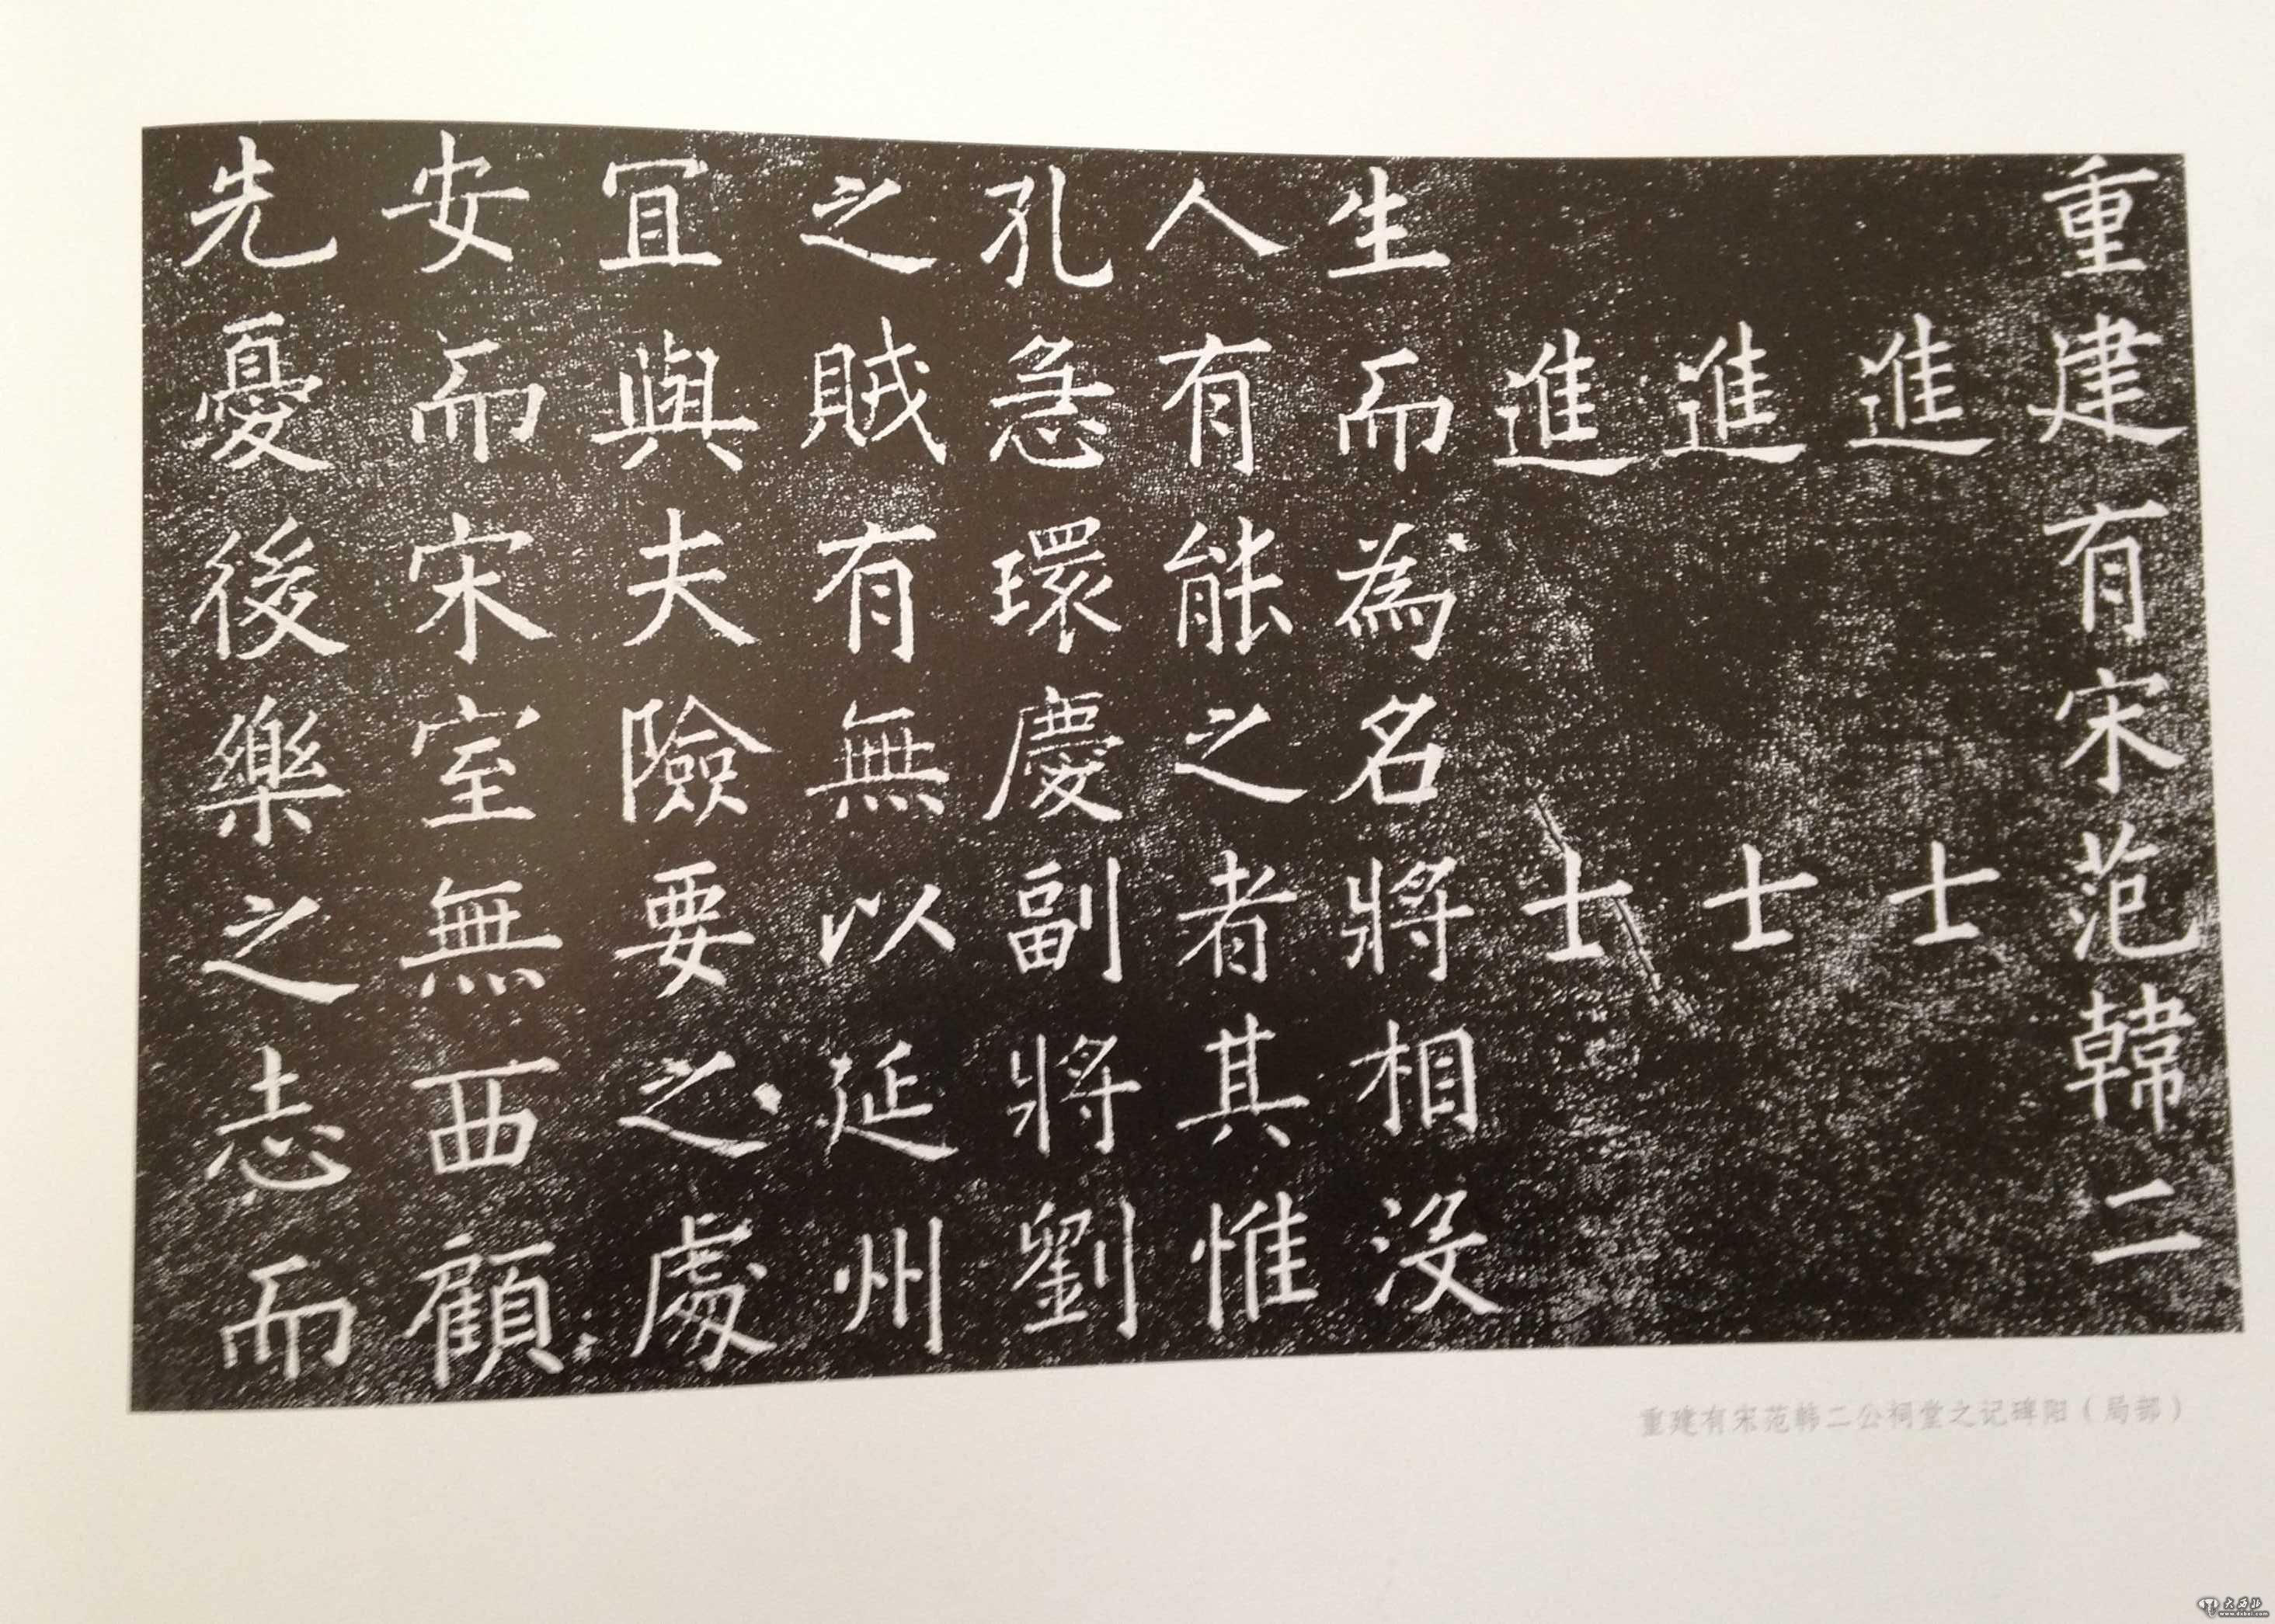 重建有宋范韓二
進士
進士
進士
生而為名將相沒
人有能之者其惟
孔急環慶副將劉
之賊有無以延州
宜與夫險要之處
安而宋室無西顧
先憂後樂之志而
重建有宋范韩二公祠堂之记碑阳（局部）
大西北
www.dxbei.com